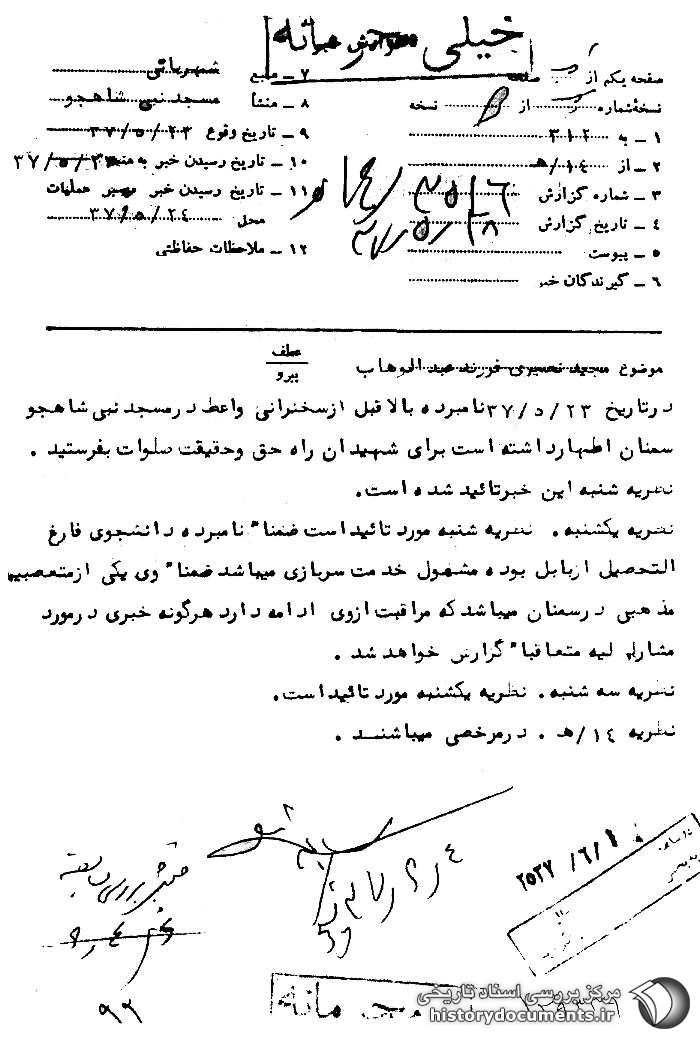 خیلی محرمانه
گزارش خبر
صفحه یکم از صفحه
نسخهٔ شماره از نسخه
۱ ــ به ۳۱۲
۲ ــ از ۱۴/هـ
۳ ــ شماره گزارش
۴ ــ تاریخ گزارش
۵ ــ پیوست
۶ ــ گیرندگان خبر
۷ ــ منبع شهربانی
۸ ــ منشأ مسجد نبی شاهجو
۹ ــ تاریخ وقوع ۳۷/۵/۲۳
۱۰ ــ تاریخ رسیدن خبر به منبع ۳۷/۵/۲۳
۱۱ ــ تاریخ رسیدن خبر برهبر عملیات
محل ۳۷/۵/۲۴
۱۲ ــ ملاحظات حفاظتی
موضوع مجید نصیری فرزند عبدالوهاب
عطف
پیرو
درتاریخ ۳۷/۵/۲۳ نامبرده بالا قبل ازسخنرانی واعظ درمسجد نبی شاهجو
سمنان اظهارداشته است برای شهیدان راه حق وحقیقت صلوات بفرستید .
نظریه شنبه این خبرتائید شده است.
نظریه یکشنبه. نظریه شنبه مورد تائیداست ضمنا" نامبرده دانشجوی فارغ
التحصیل ازبابل بوده مشمول خدمت سربازی میباشد ضمنا" وی یکی ازمتعصبین
مذهبی درسمنان میباشد که مراقبت ازوی ادامه دارد هرگونه خبری درمورد
مشارالیه متعاقبا" گزارش خواهد شد .
نظریه سه شنبه. نظریه یکشنبه مورد تائیداست.
نظریه ۱۴/هـ . درمرخصی میباشند .
۲۵۳۷/۶/۱
۹۹
محرمانه
مرکز بررسی اسناد تاریخی
historydocuments.ir